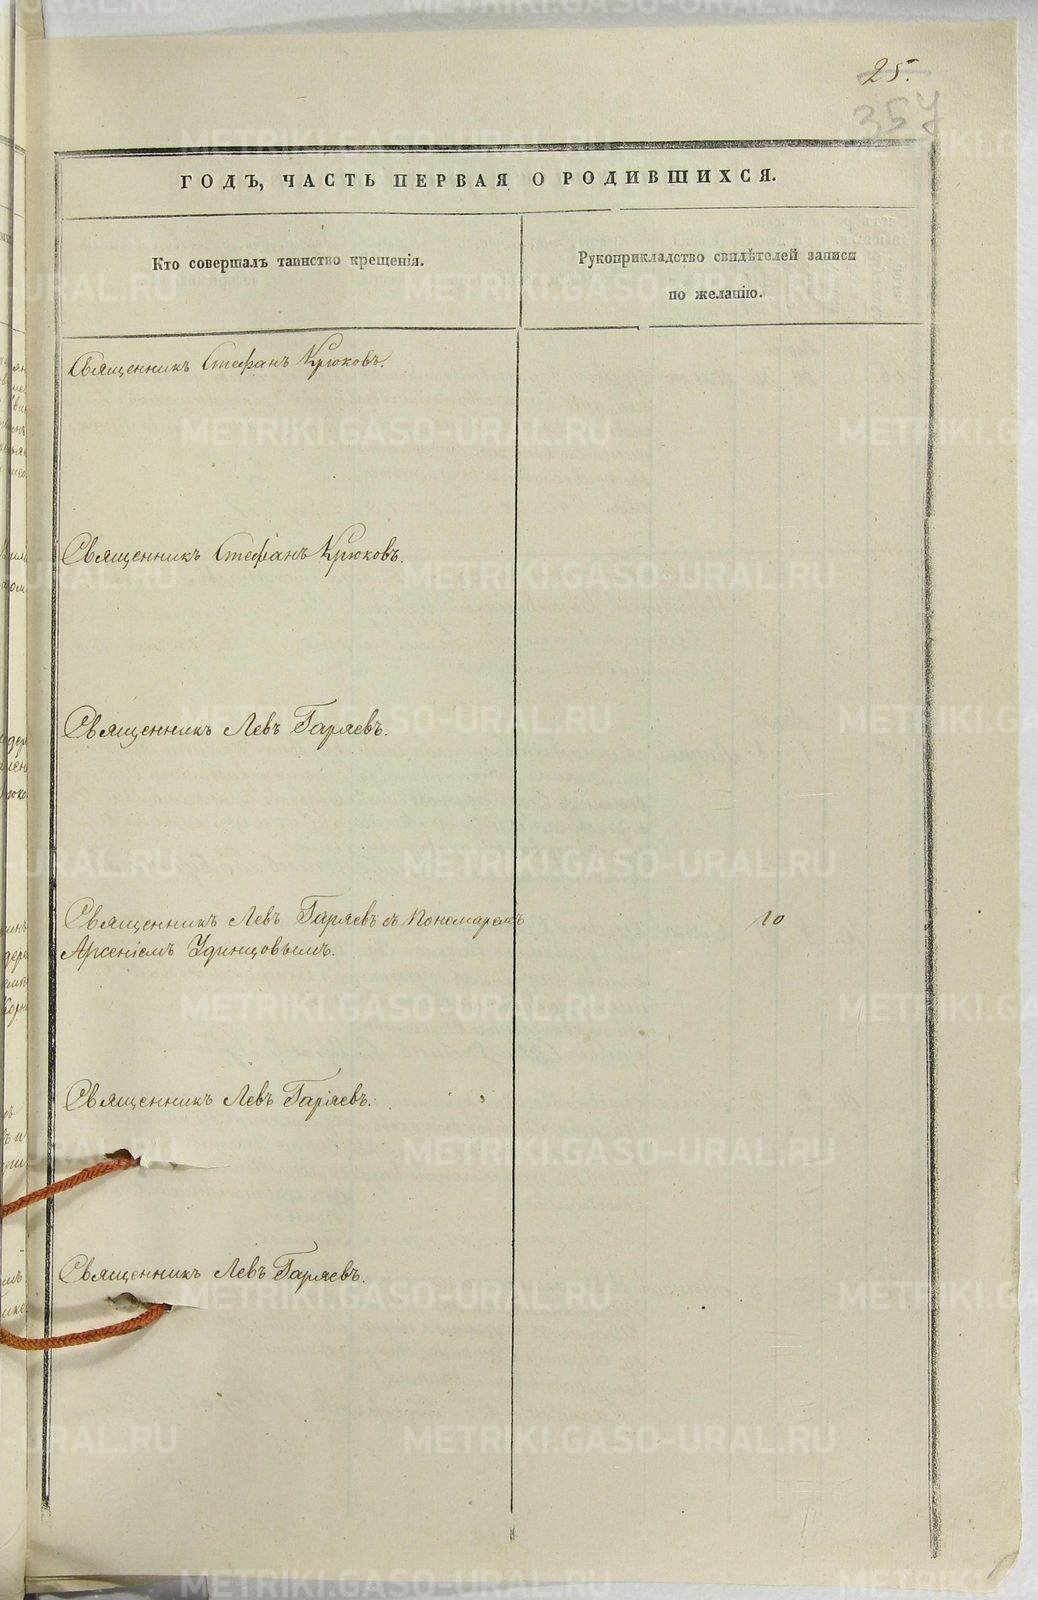 25.
357
ГОДЪ, ЧАСТЬ ПЕРВАЯ О РОДИВШИХСЯ.
Кто совершалъ таинство крещенія.
Рукоприкладство свидѣтелей записи
по желанію.
Священникъ Стефанъ Крюковъ.
Священникъ Стефанъ Крюковъ.
Священникъ Левъ Гаряевъ.
Священникъ Левъ Гаряевъ съ Пономаремъ
Арсеніемъ Удинцовымъ.
10
Священникъ Левъ Гаряевъ.
Священникъ Левъ Гаряевъ.
METRIKI.GASO-URAL.RU